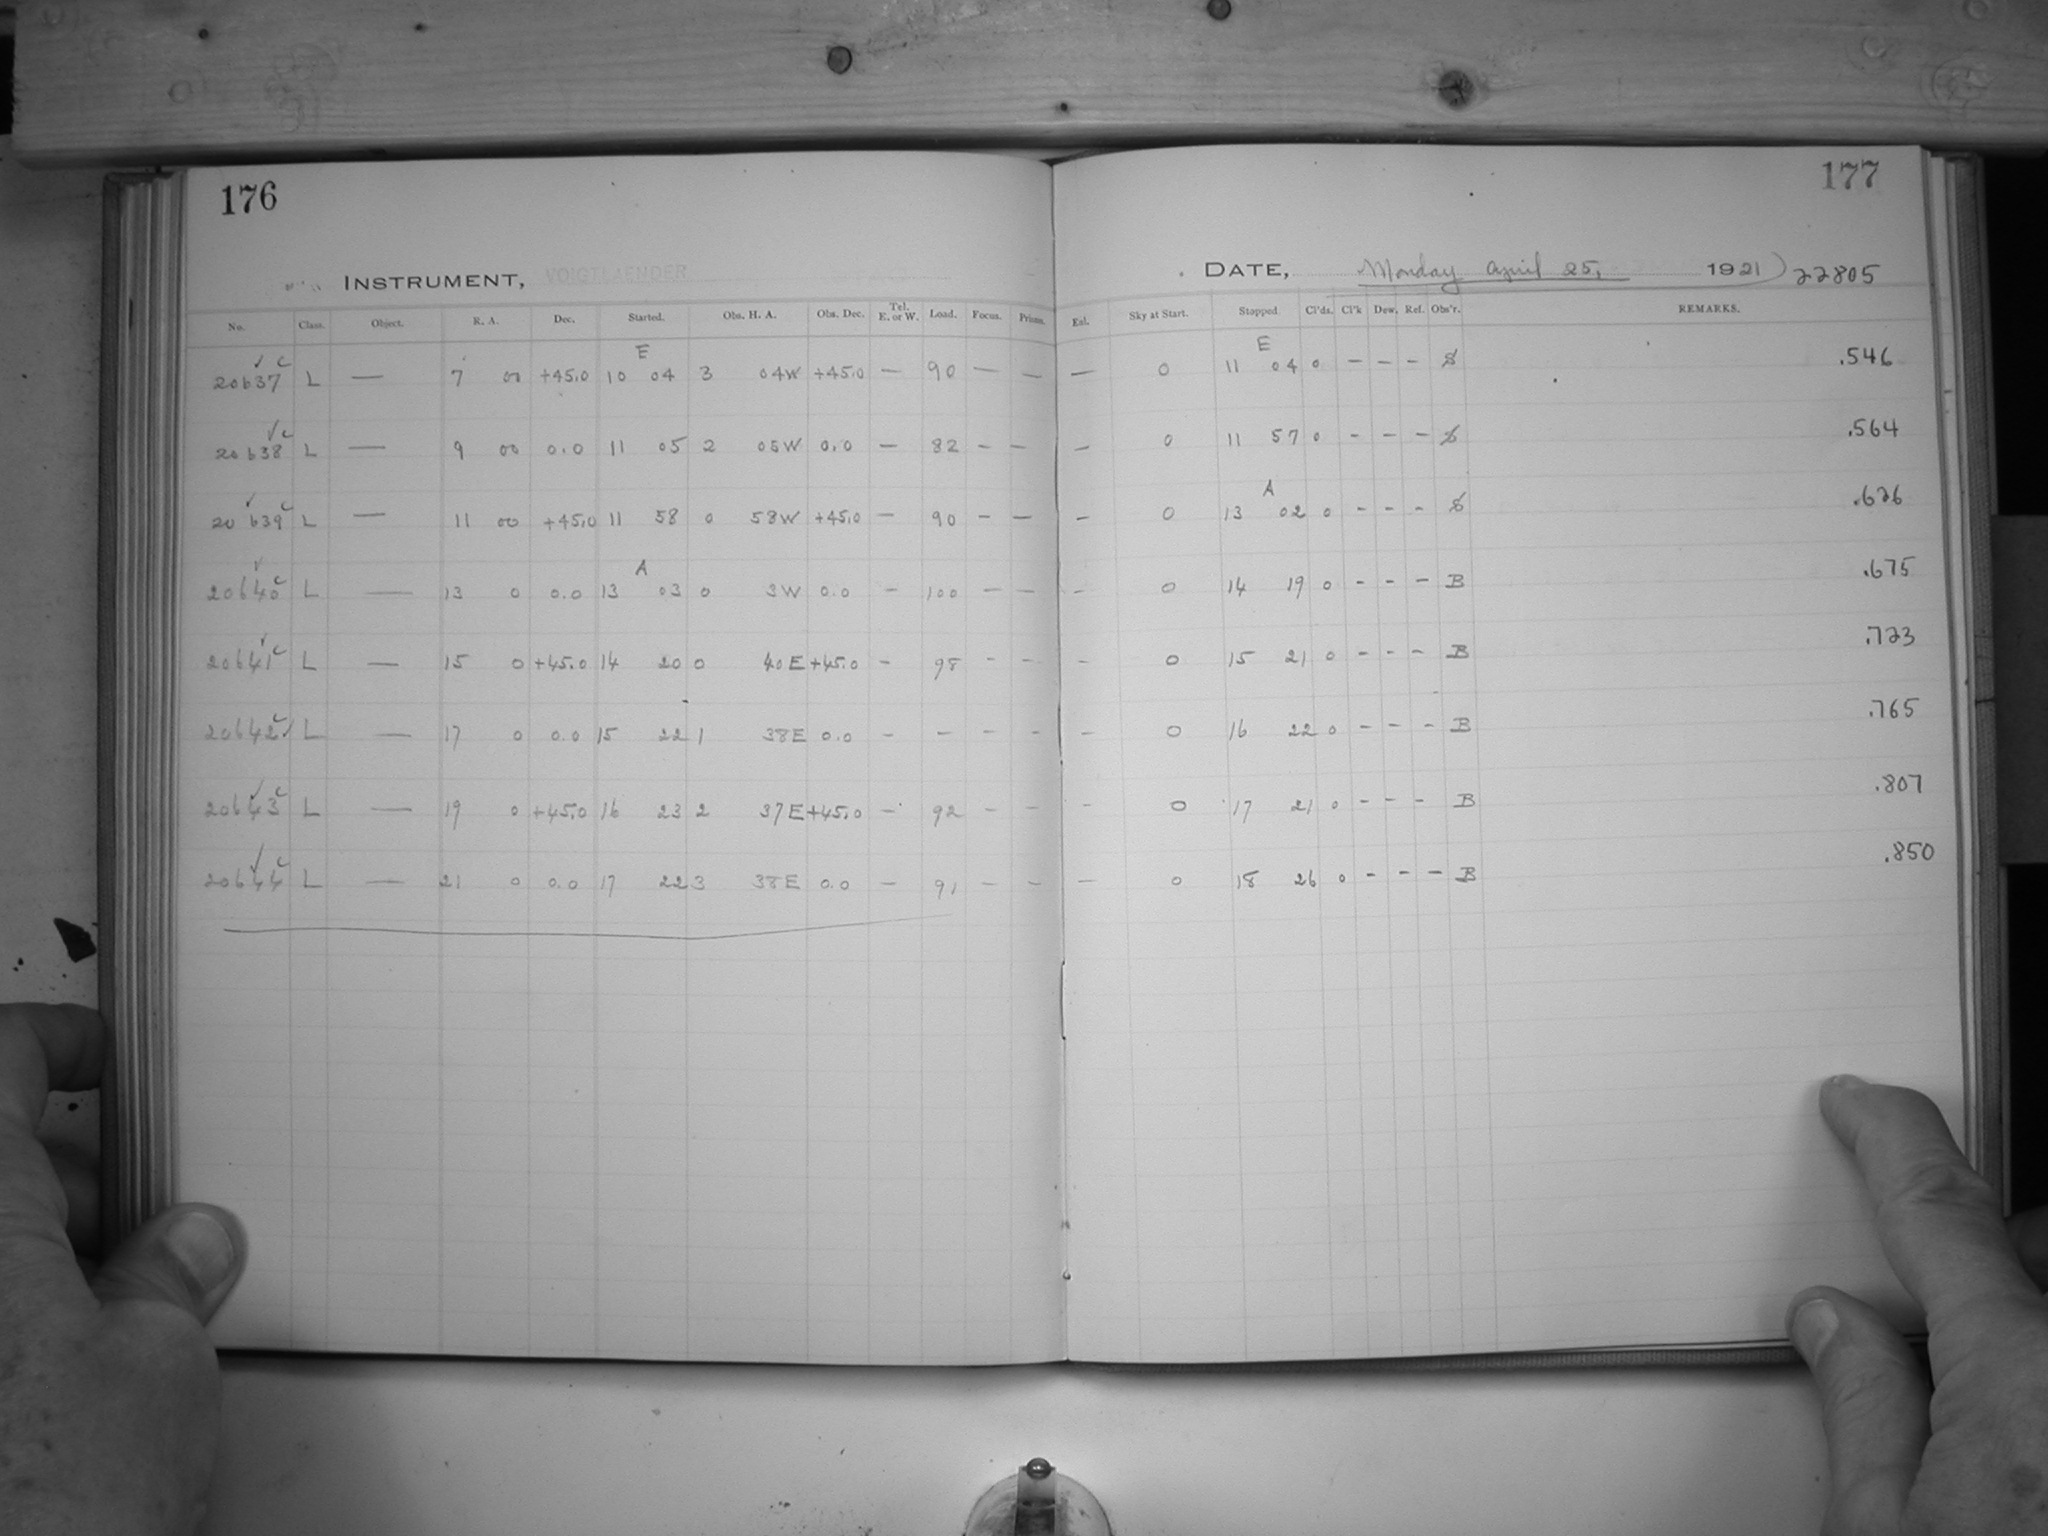 176
177
INSTRUMENT, VOIGTLAENDER
DATE, Monday April 25, 1921) 22805
No. Class. Object. R. A. Dec. Started. Obs. H. A. Obs. Dec. Tel. E. or W. Load. Focus. Prisms. Exl. Sky at Start. Stopped Cl'ds. Cl'k Dew. Ref. Obs'r. REMARKS.
E E
20637 ✓ c L — 7 00 +45.0 10 04 3 04W +45.0 — 90 — — — 0 11 04 0 — — — S .546
20638 ✓ c L — 9 00 0.0 11 05 2 05W 0.0 — 82 - — — 0 11 57 0 - - - S .564
A
20639 ✓ c L — 11 00 +45.0 11 58 0 58W +45.0 — 90 - — - 0 13 02 0 - - - S .626
A
20640 ✓ c L — 13 0 0.0 13 03 0 3W 0.0 - 100 — — - 0 14 19 0 - - - B .675
20641 ✓ c L — 15 0 +45.0 14 20 0 40E +45.0 - 98 - - - 0 15 21 0 - - - B .723
20642 c ✓ L — 17 0 0.0 15 22 1 38E 0.0 - - - - - 0 16 22 0 - - - B .765
20643 ✓ c L — 19 0 +45.0 16 23 2 37E +45.0 - 92 - - - 0 17 21 0 - - - B .807
20644 ✓ c L — 21 0 0.0 17 22 3 38E 0.0 — 91 - - — 0 18 26 0 - - - B .850